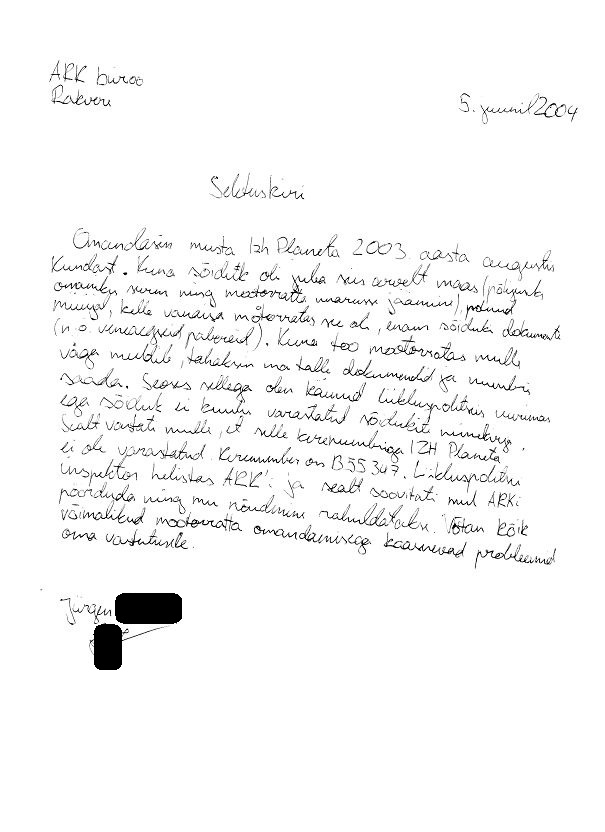 ARK büroo
Rakvere
5. juunil 2004
Seletuskiri
Omandasin musta Izh Planeta 2003. aasta augustis
Kundast. Kuna sõiduk oli juba siis arvelt maas (põhjuseks
omaniku surm ning mootorratta maruse jäämine), polnud
müüjal, kelle vanaisa mootorratas see oli, enam sõiduki dokumente
(n.ö. veneaegseid pabereid). Kuna too mootorratas mulle
väga meeldib, tahaksin ma talle dokumendid ja numbri
saada. Seoses sellega olen käinud liikluspolitseis uurimas
ega sõiduk ei kuulu varastatud sõidukite nimekirja.
Sealt vastati mulle, et selle kerenumbriga IZH Planeta
ei ole varastatud. Kerenumber on B55347. Liikluspolitsei
inspektor helistas ARK'i ja sealt soovitati mul ARKi
pöörduda ning mu nõudmine rahuldatakse. Võtan kõik
võimalikud mootorratta omandamisega kaasnevad probleemid
oma vastutusele.
Jürgen